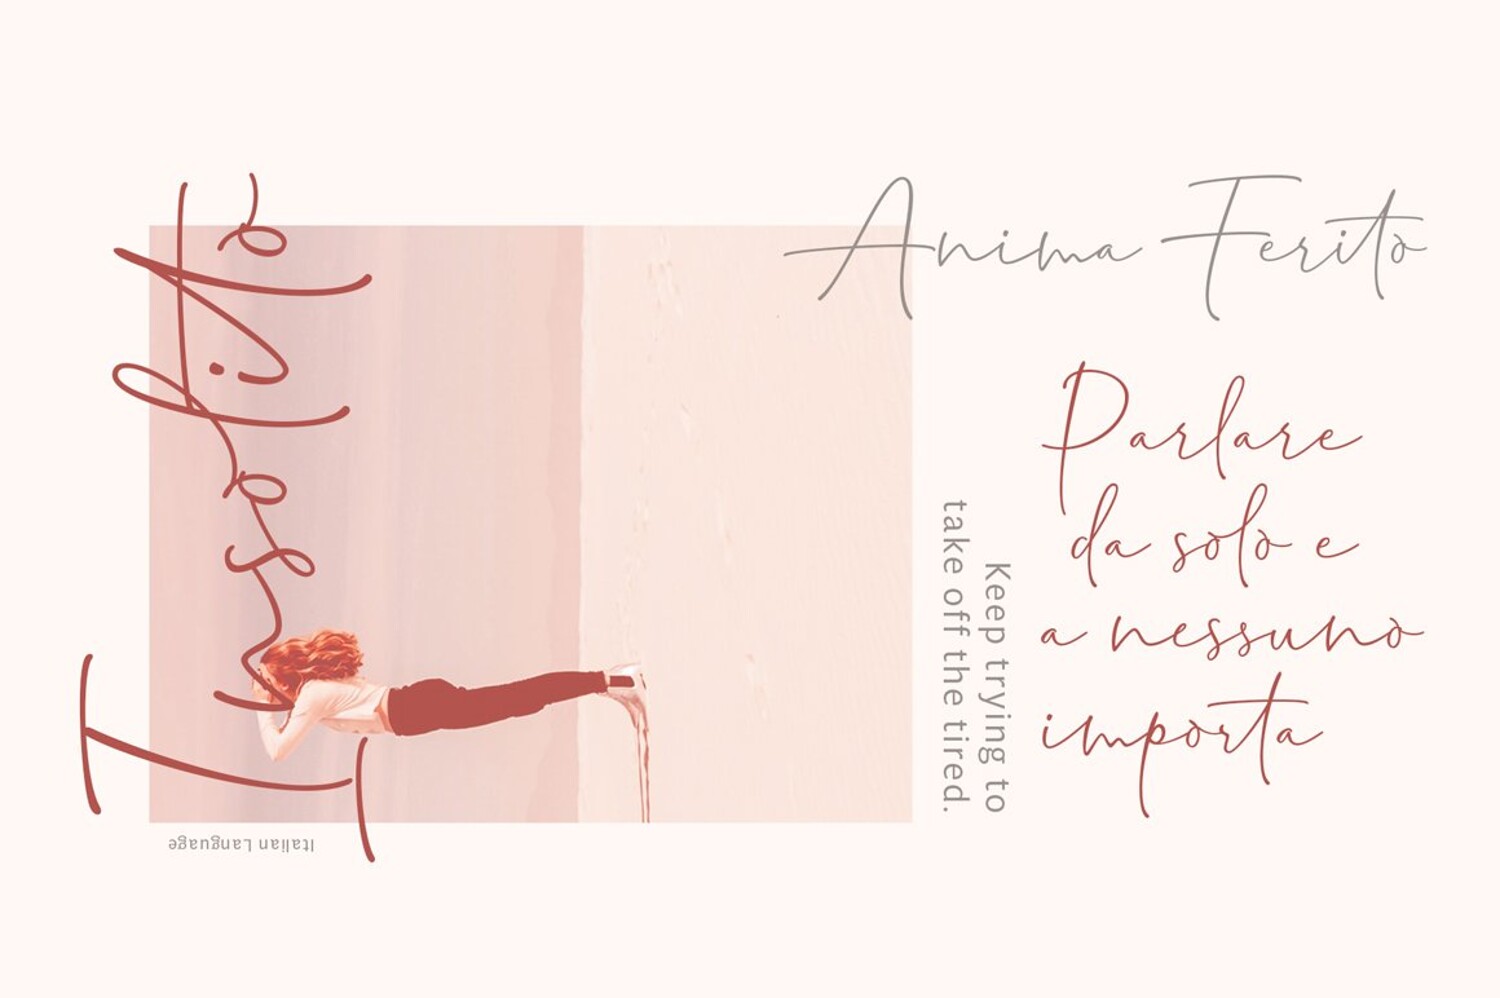 Insolito
Anima Ferito
Parlare
da solo e
a nessuno
importa
Keep trying to
take off the tired.
Italian Language